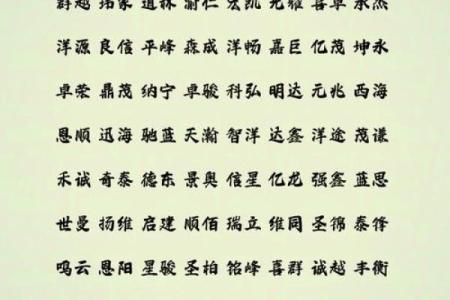 群越 玮家 道林 瀚仁 宏凯 光耀 喜卓 永杰
洋源 良信 平峰 森成 洋畅 嘉巨 亿茂 坤永
卓荣 鼎茂 纳宁 卓骏 科弘 明达 元兆 西海
恩顺 迅海 驰蓝 天瀚 智洋 达鑫 洋途 茂谦
禾诚 奇泰 德东 景奥 信星 亿龙 强鑫 蓝思
世曼 扬维 启建 顺佰 瑞立 维同 圣锦 泰锋
鸣云 恩阳 星骏 圣柏 铭峰 喜群 诚越 丰衡